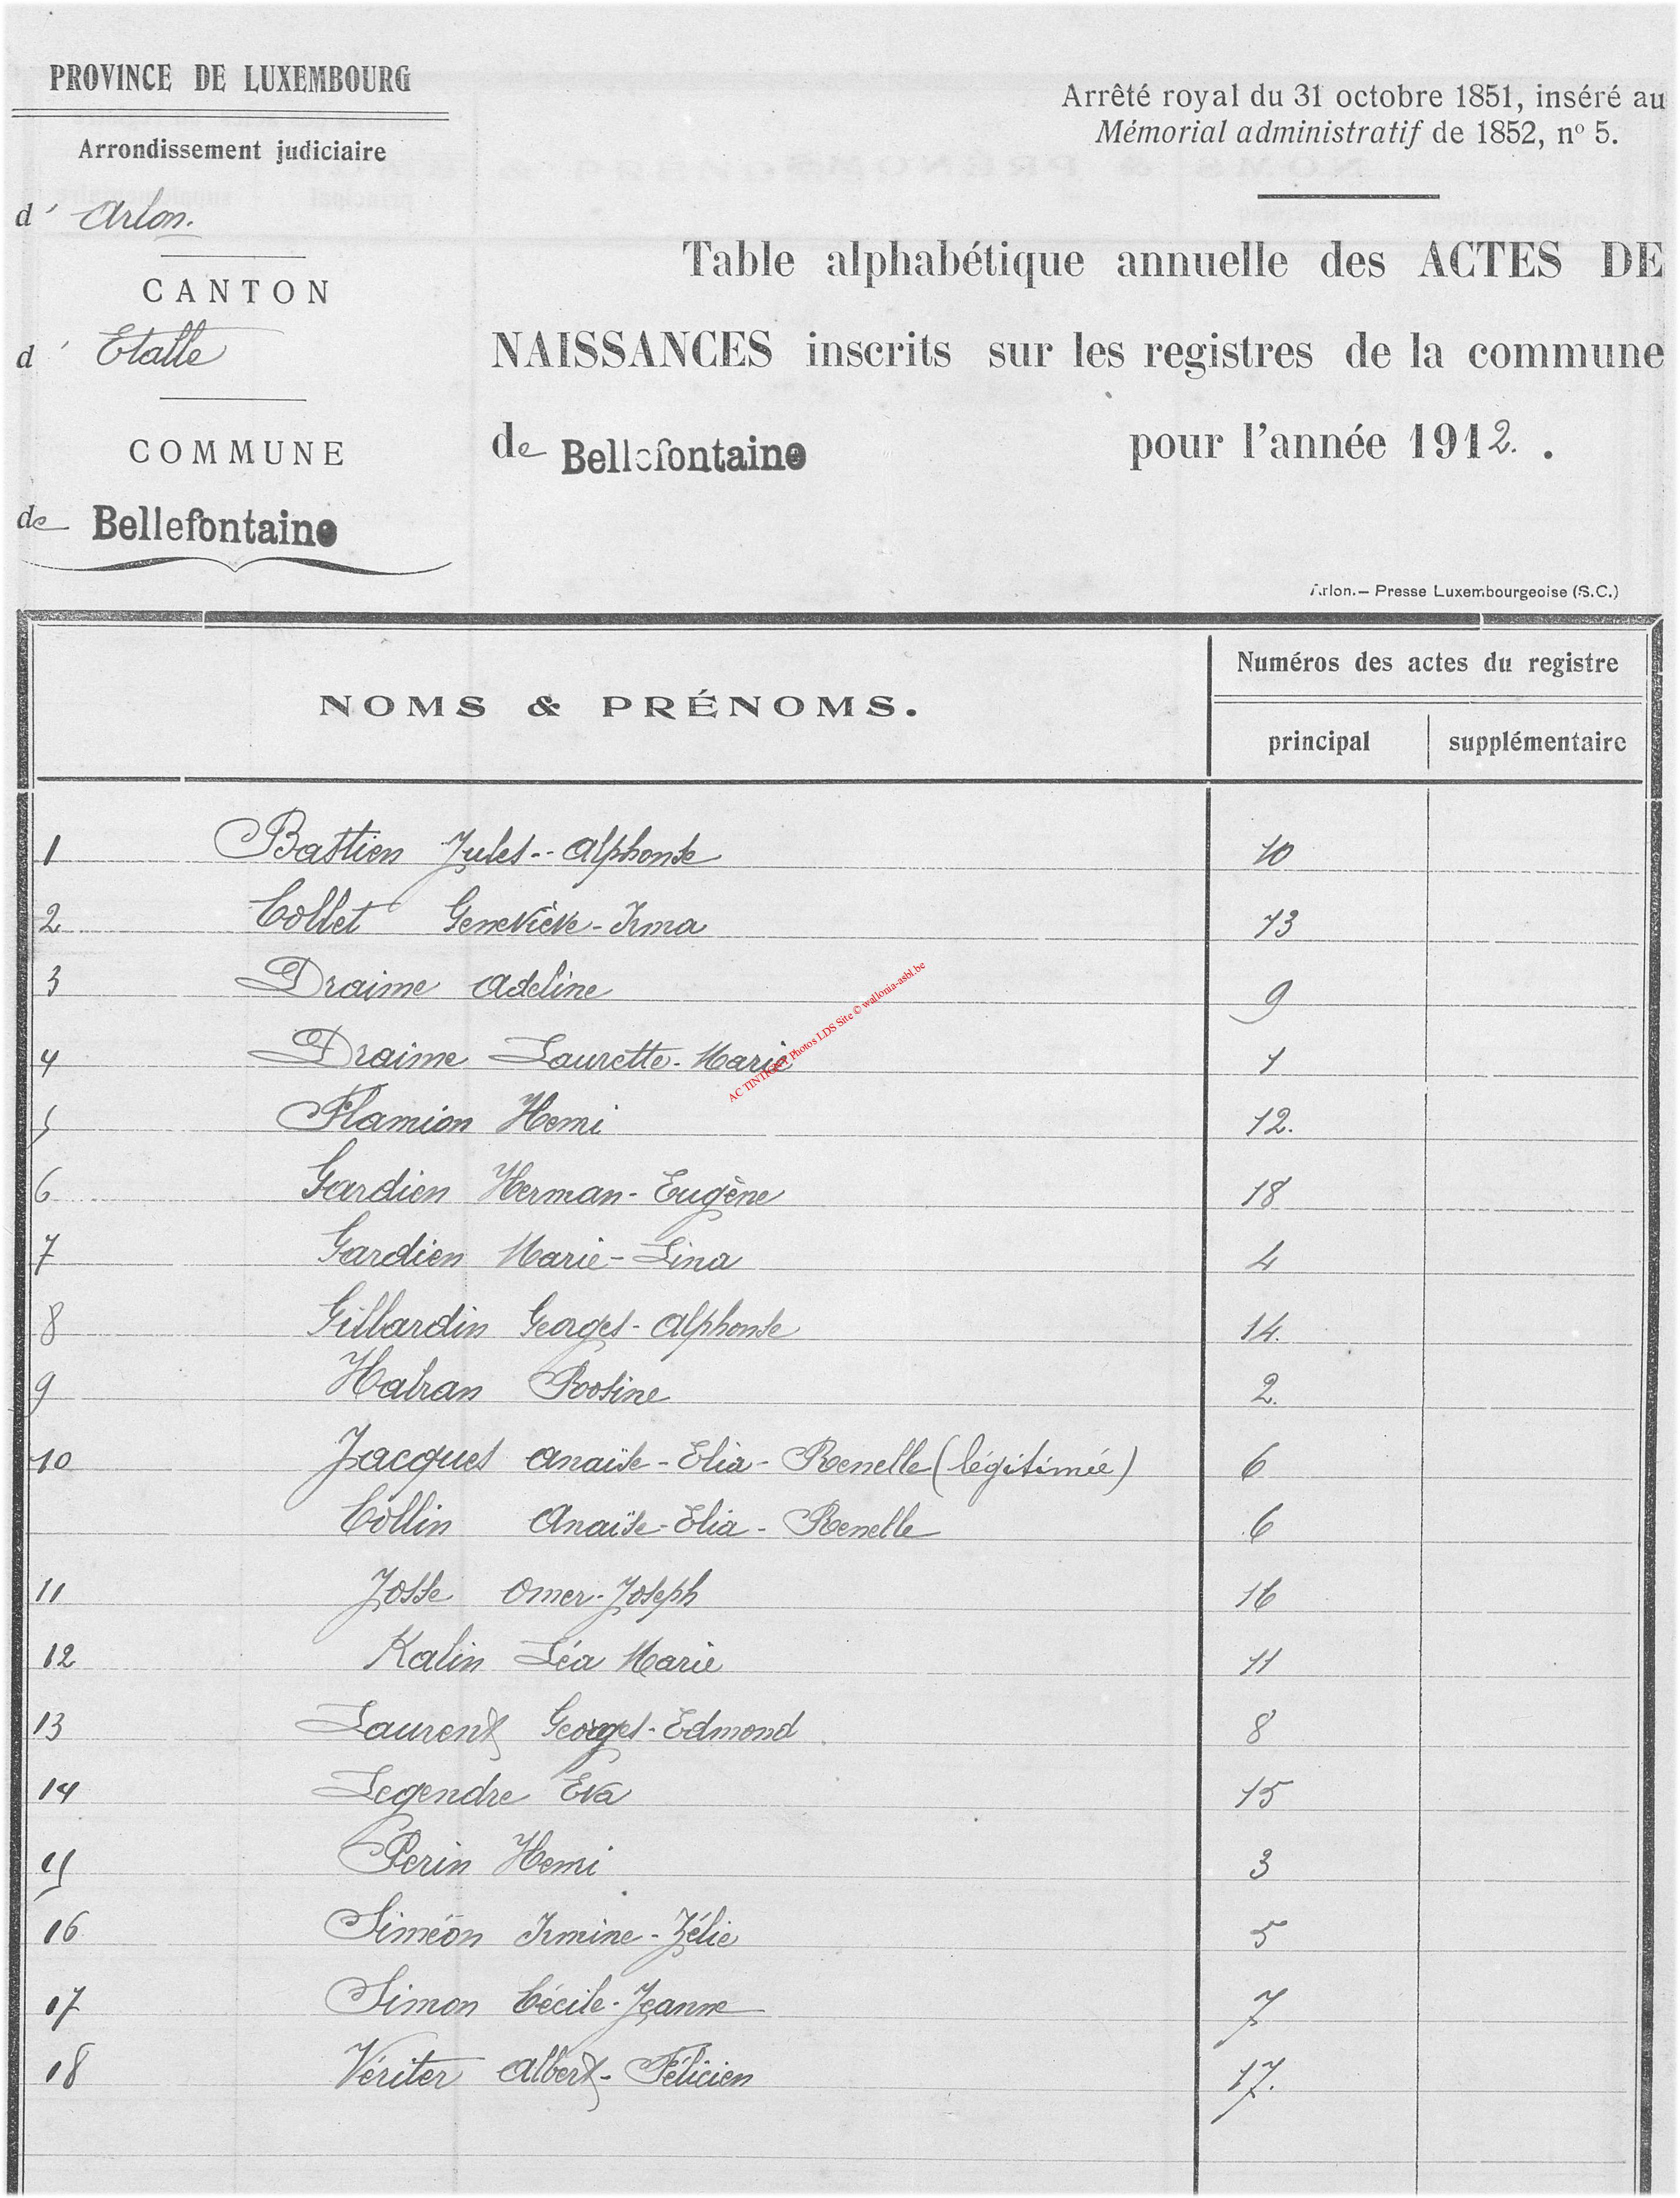 PROVINCE DE LUXEMBOURG
Arrondissement judiciaire
d' Arlon.
CANTON
d' Etalle
COMMUNE
de Bellefontaine
Arrêté royal du 31 octobre 1851, inséré au
Mémorial administratif de 1852, nº 5.
Table alphabétique annuelle des ACTES DE
NAISSANCES inscrits sur les registres de la commune
de Bellefontaine pour l'année 1912. .
Arlon.— Presse Luxembourgeoise (S.C.)
NOMS & PRÉNOMS.
Numéros des actes du registre
principal supplémentaire
1 Bastien Jules-Alphonse 10
2 Collet Geneviève-Irma 13
3 Draime Adeline 9
4 Draime Laurette-Marie 1
5 Flamion Henri 12.
6 Gardien Herman-Eugène 18
7 Gardien Marie-Lina 4
8 Gillardin Georges-Alphonse 14.
9 Habran Rosine 2.
10 Jacques Anaïse-Elia-Renelle (légitimée) 6
Collin Anaïse-Elia-Renelle 6
11 Josse Omer-Joseph 16
12 Kalin Léa Marie 11
13 Laurent Georges-Edmond 8
14 Legendre Eva 15
15 Perin Henri 3
16 Siméon Irmine-Zélie 5
17 Simon Cécile-Jeanne 7
18 Vériter Albert-Félicien 17.
AC TINTIGNY Photos LDS Site © wallonia-asbl.be